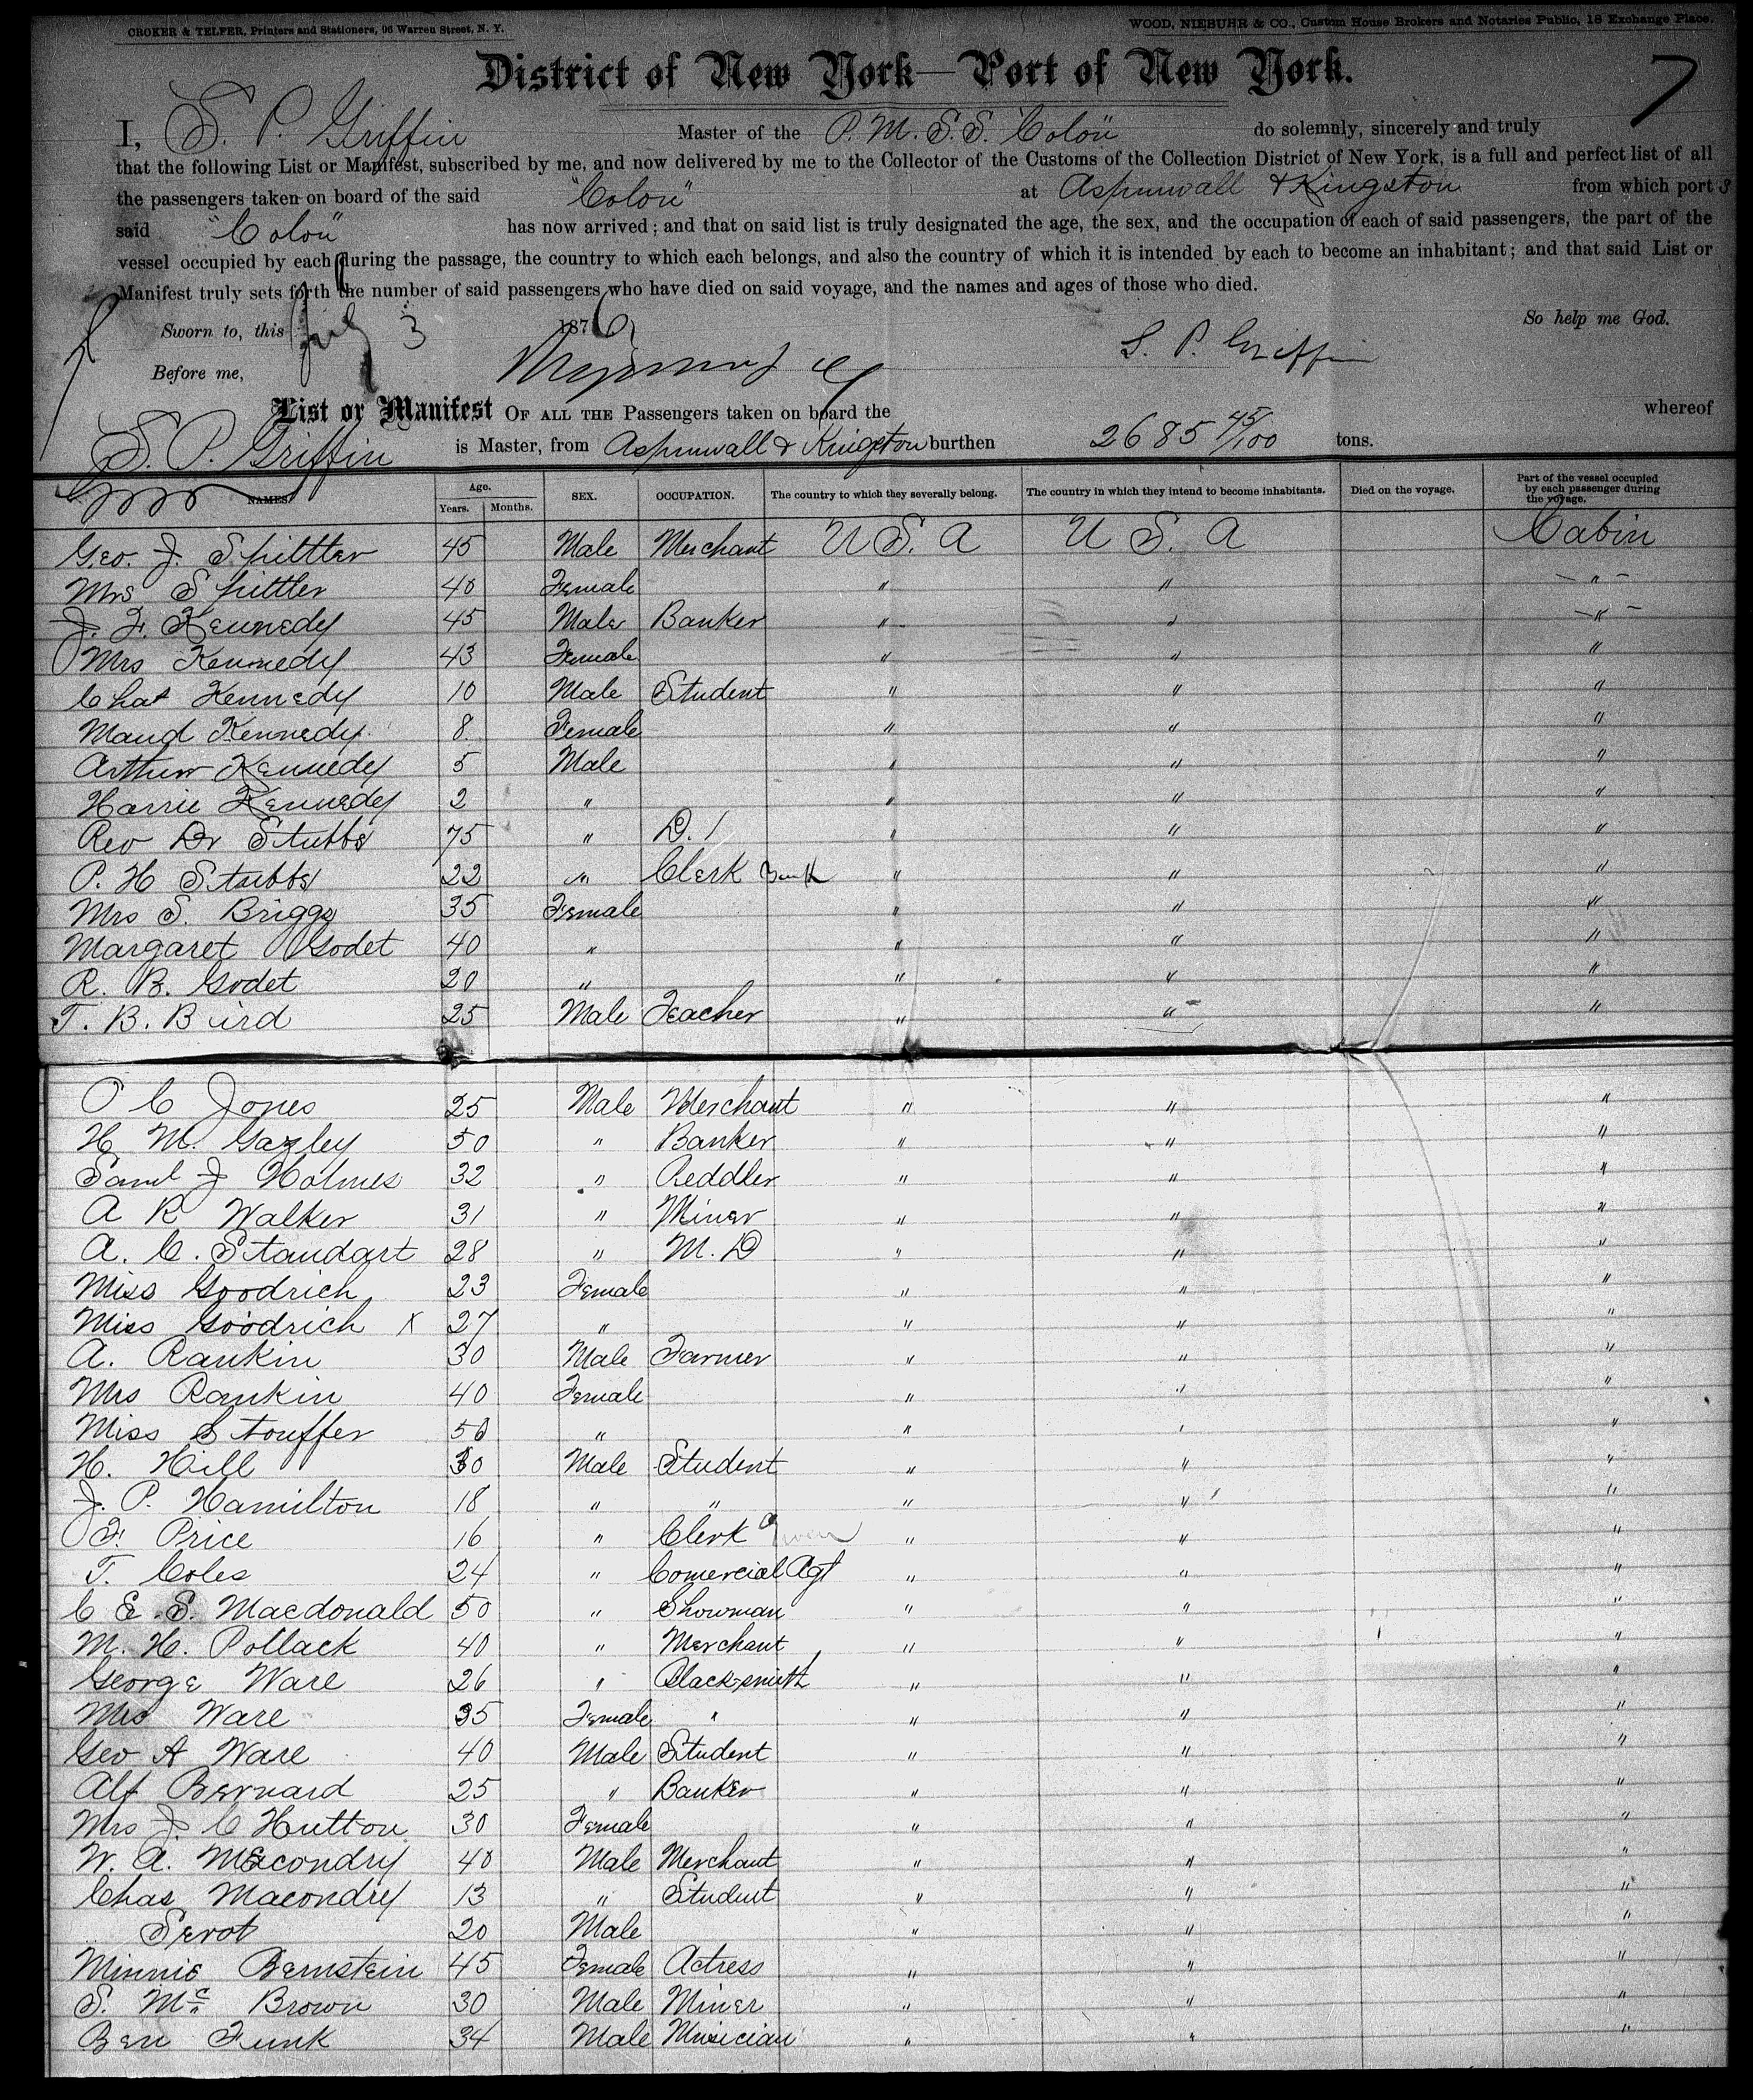 CROKER & TELFER, Printers and Stationers, 96 Warren Street, N. Y.
WOOD, NIEBUHR & CO., Custom House Brokers and Notaries Public, 18 Exchange Place.
District of New York—Port of New York.
7
I, S. P. Griffin Master of the P. M. S. S. "Colon" do solemnly, sincerely and truly
that the following List or Manifest, subscribed by me, and now delivered by me to the Collector of the Customs of the Collection District of New York, is a full and perfect list of all
the passengers taken on board of the said "Colon" at Aspinwall & Kingston from which port s
said "Colon" has now arrived; and that on said list is truly designated the age, the sex, and the occupation of each of said passengers, the part of the
vessel occupied by each during the passage, the country to which each belongs, and also the country of which it is intended by each to become an inhabitant; and that said List or
Manifest truly sets forth the number of said passengers who have died on said voyage, and the names and ages of those who died.
Sworn to, this July 3 1876 So help me God.
Before me, S. P. Griffin
List or Manifest OF ALL THE Passengers taken on board the whereof
S. P. Griffin is Master, from Aspinwall & Kingston burthen 2685 45/100 tons.
NAMES. Age. Years. Months. SEX. OCCUPATION. The country to which they severally belong. The country in which they intend to become inhabitants. Died on the voyage. Part of the vessel occupied by each passenger during the voyage.
Geo. J. Spittler 45 Male Merchant U S. A U S. A Cabin
Mrs Spittler 40 Female " " "
J. F. Kennedy 45 Male Banker " " "
Mrs Kennedy 43 Female " " "
Chat Kennedy 10 Male Student " " "
Maud Kennedy 8 Female " " "
Arthur Kennedy 5 Male " " "
Harrie Kennedy 2 " " " "
Rev Dr Stubbs 75 " D. " " "
P. H Stubbs 22 " Clerk Bank " " "
Mrs S. Briggs 35 Female " " "
Margaret Godet 40 " " " "
R. B. Godet 20 " " " "
T. B. Bird 25 Male Teacher " " "
O C Jones 25 Male Merchant " " "
H M. Gazley 50 " Banker " " "
Saml J Holmes 32 " Peddler " " "
A R Walker 31 " Miner " " "
A. C. Standart 28 " M. D " " "
Miss Goodrich 23 Female " " "
Miss Goodrich x 27 " " " "
A. Rankin 30 Male Farmer " " "
Mrs Rankin 40 Female " " "
Miss Stouffer 50 " " " "
H. Hill 30 Male Student " " "
J. P. Hamilton 18 " " " " "
F. Price 16 " Clerk " " "
T. Coles 24 " Comercial Agt " " "
C E. S. Macdonald 50 " Showman " " "
M. H. Pollack 40 " Merchant " " "
George Ware 26 " Black-smith " " "
Mrs Ware 35 Female " " " "
Geo A Ware 40 Male Student " " "
Alf Bernard 25 " Banker " " "
Mrs J. C Hutton 30 Female " " "
W. A. Macondry 40 Male Merchant " " "
Chas Macondry 13 " Student " " "
Servt 20 Male " " "
Minnie Bernstein 45 Female Actress " " "
S. Mc Brown 30 Male Miner " " "
Ben Funk 34 Male Musician " " "